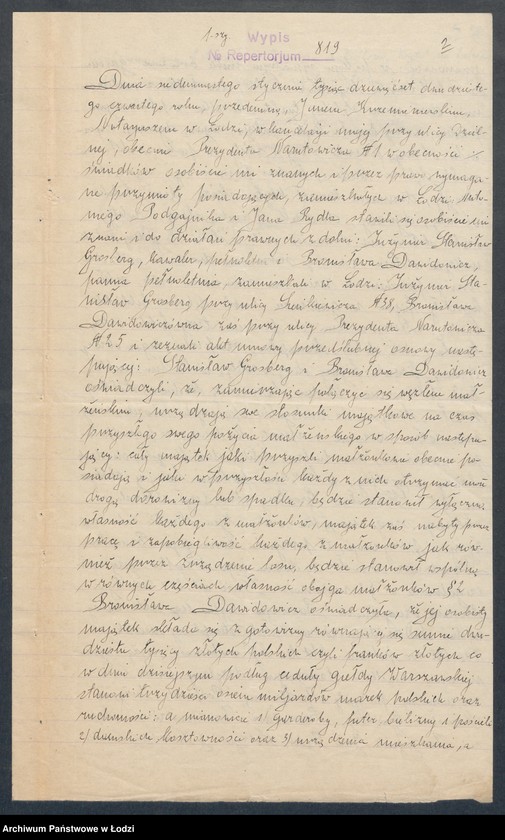 Wypis
№ Repertorjum 819
2
Dnia siedemnastego stycznia tysiąc dziewięćset dwudzieste-
go czwartego roku, przedemną, Janem Krzemieniewskim,
Notaryuszem w Łodzi, w kancelarji mojej przy ulicy Dziel-
nej, obecnie Prezydenta Narutowicza № 1 w obecności
świadków osobiście mi znanych i przez prawo wymaga-
ne przymioty posiadających, zamieszkałych w Łodzi, Anto-
niego Podgajnika i Jana Rydla stawili się osobiście mi
znani i do działań prawnych zdolni: Inżynier Stanisław
Grosberg, kawaler, pełnoletni i Bronisława Dawidowicz,
panna pełnoletnia, zamieszkali w Łodzi: Inżynier Sta-
nisław Grosberg przy ulicy Sienkiewicza № 38, Bronisława
Dawidowiczówna zaś przy ulicy Prezydenta Narutowicza
№ 25 i zeznali akt umowy przedślubnej osnowy nastę-
pującej: Stanisław Grosberg i Bronisława Dawidowicz
oświadczyli, że, zamierzając połączyć się węzłem mał-
żeńskim, urządzają swe stosunki majątkowe na czas
przyszłego swego pożycia małżeńskiego, w sposób następu-
jący: cały majątek jaki przyszli małżonkowie obecnie po-
siadają i jaki w przyszłości każdy z nich otrzymać może
drogą darowizny lub spadku, będzie stanowił wyłączną
własność każdego z małżonków, majątek zaś nabyty przez
pracę i zapobiegliwość każdego z małżonków, jak rów-
nież przez zrządzenie losu, będzie stanowił wspólną
w równych częściach własność obojga małżonków § 2
Bronisława Dawidowicz oświadczyła, że jej osobisty
majątek składa się z gotowizny równającej się sumie dwu-
dziestu tysięcy złotych polskich czyli franków złotych co
w dniu dzisiejszym podług ceduły giełdy Warszawskiej
stanowi trzydzieści osiem miljardów marek polskich oraz
ruchomości: a mianowicie 1) garderoby, futer, bielizny i pościeli
2) damskich kosztowności oraz 3) urządzenia mieszkania, a
Archiwum Państwowe w Łodzi